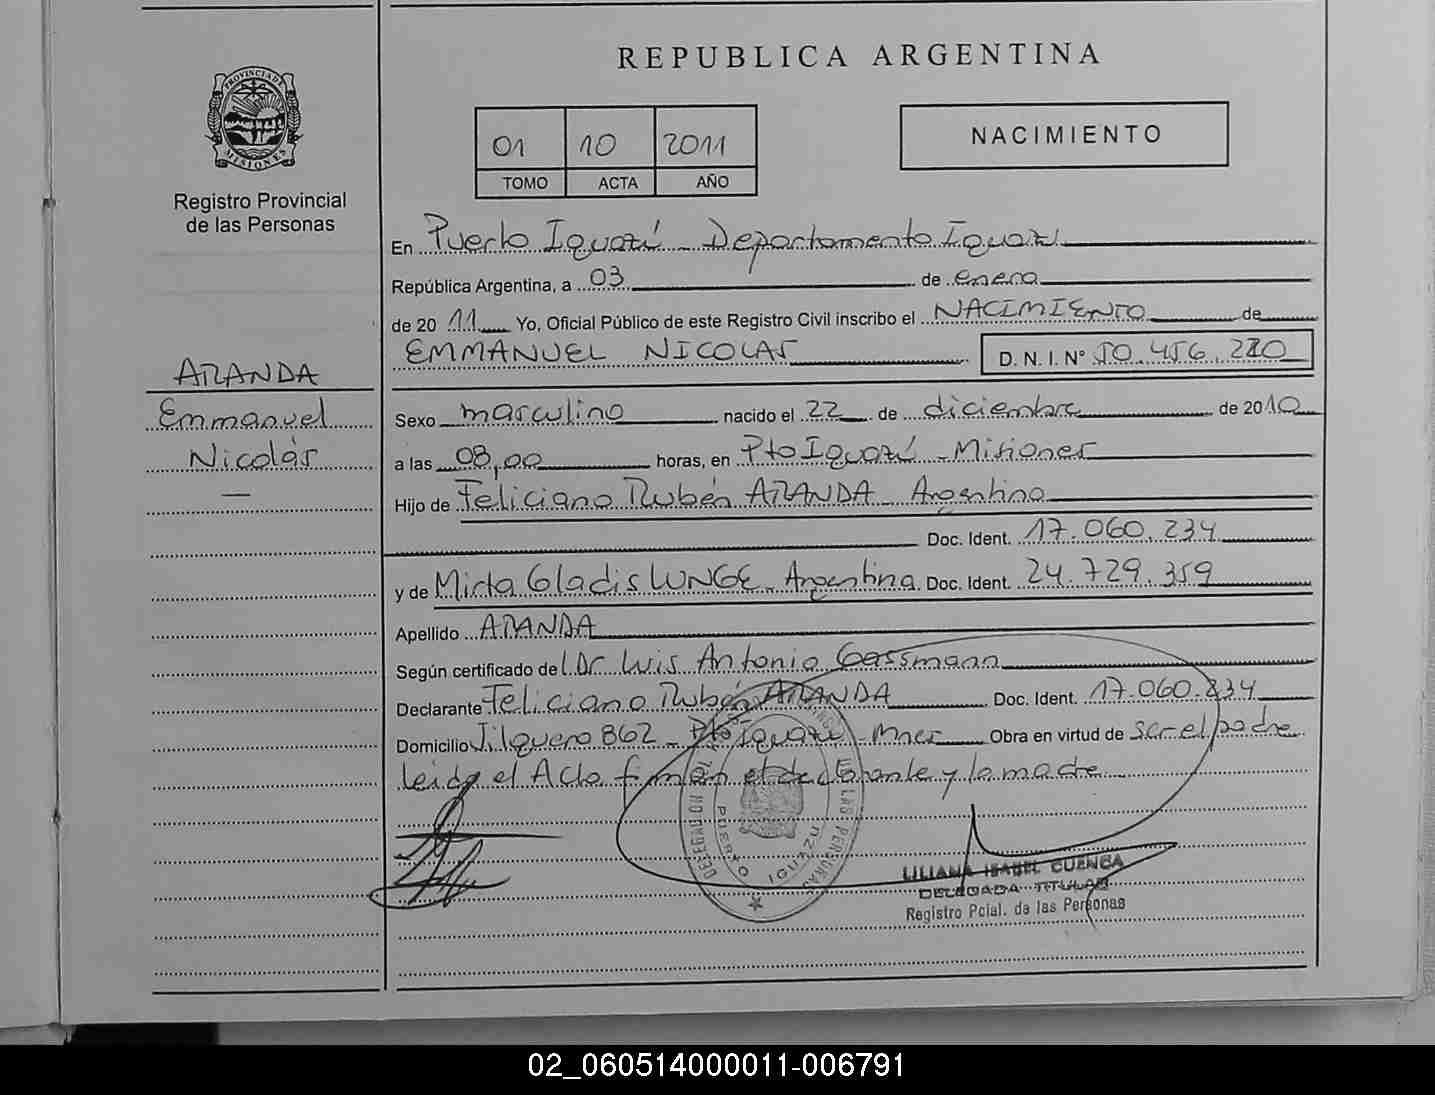 REPUBLICA ARGENTINA
PROVINCIA DE MISIONES
Registro Provincial
de las Personas
01 10 2011
TOMO ACTA AÑO
NACIMIENTO
En Puerto Iguazú - Departamento Iguazú
República Argentina, a 03 de enero
de 2011 Yo, Oficial Público de este Registro Civil inscribo el NACIMIENTO de
EMMANUEL NICOLAS D. N. I. Nº 50.456.220
ARANDA
Emmanuel
Nicolás
—
Sexo masculino nacido el 22 de diciembre de 2010
a las 08,00 horas, en Pto Iguazú - Misiones
Hijo de Feliciano Rubén ARANDA - Argentino
Doc. Ident. 17.060.234
y de Mirta Gladis LUNGE - Argentina. Doc. Ident. 24.729.359
Apellido ARANDA
Según certificado del Dr Luis Antonio Gassmann
Declarante Feliciano Rubén ARANDA Doc. Ident. 17.060.234
Domicilio Jilguero 862 - Pto Iguazú - Mnes Obra en virtud de ser el padre
leida el Acta firman el declarante y la madre
DELEGACION DE LAS PERSONAS
PUERTO IGUAZU
LILIANA ISABEL CUENCA
DELEGADA TITULAR
Registro Pcial. de las Personas
02_060514000011-006791